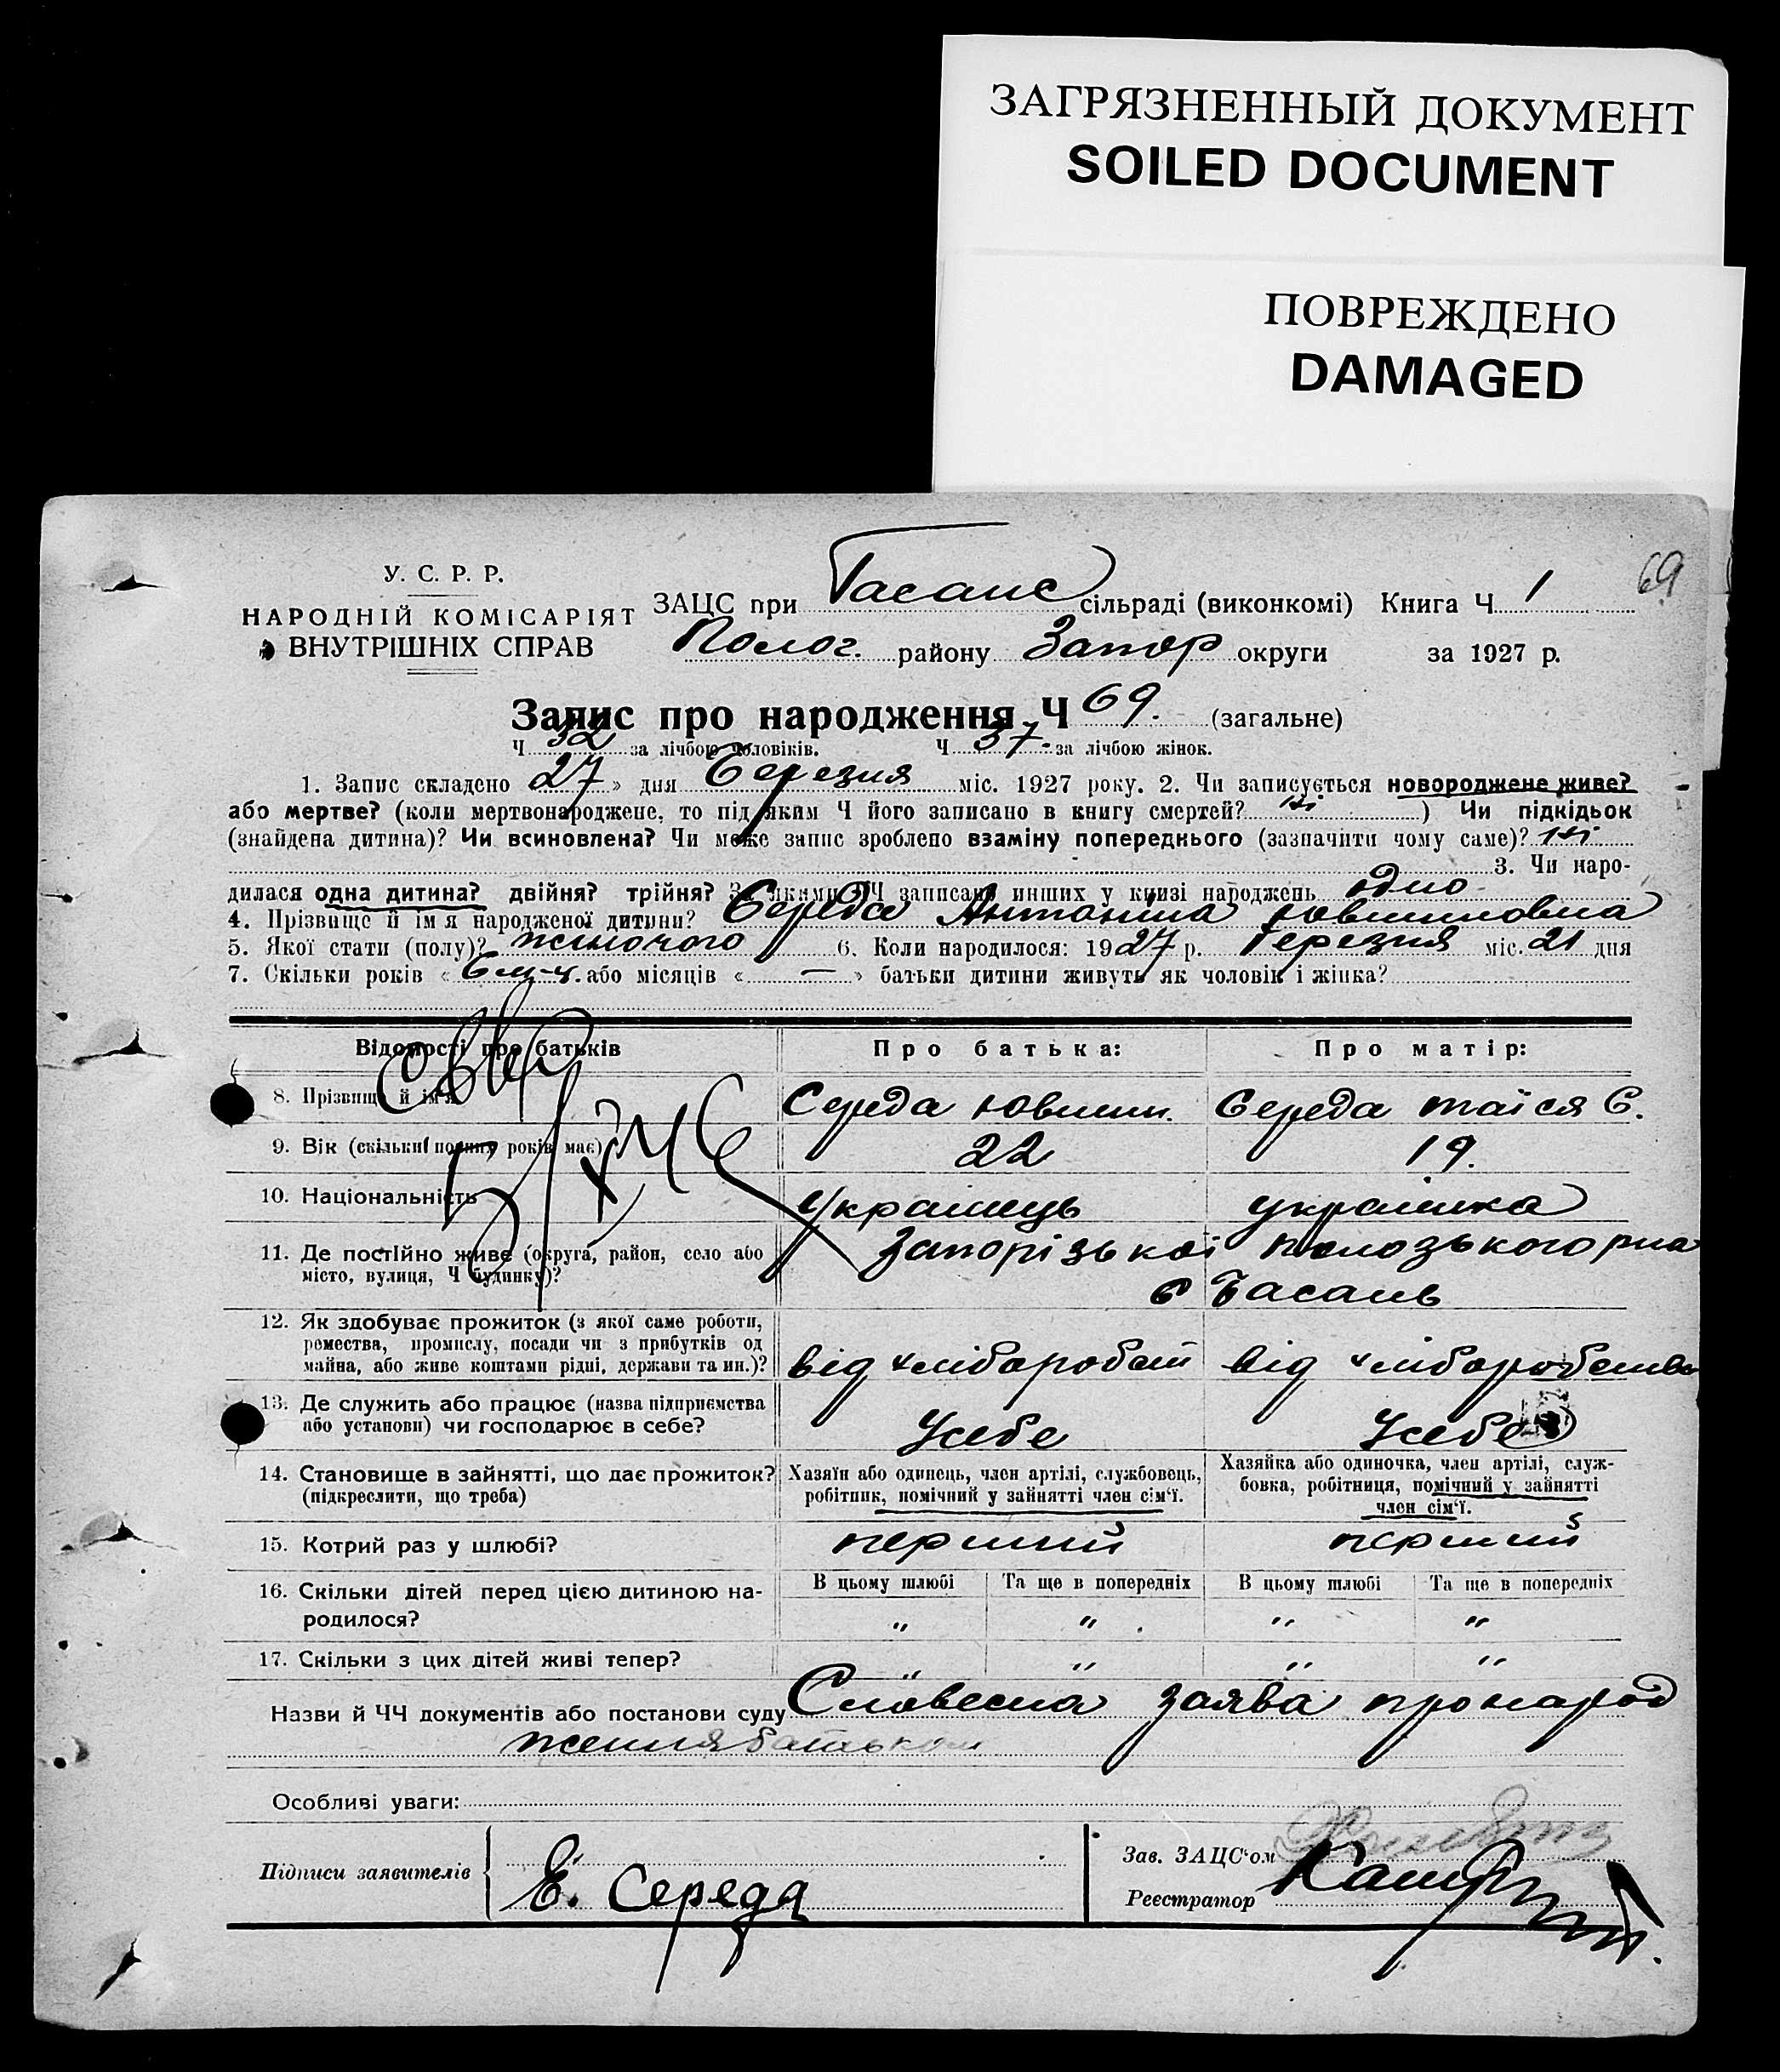 ЗАГРЯЗНЕННЫЙ ДОКУМЕНТ
SOILED DOCUMENT
ПОВРЕЖДЕНО
DAMAGED
69
У. С. Р. Р.
НАРОДНІЙ КОМІСАРІЯТ
ВНУТРІШНІХ СПРАВ
ЗАЦС при Басанс сільраді (виконкомі) Книга Ч 1
Полог. району Запор округи за 1927 р.
Запис про народження Ч 69. (загальне)
Ч 32 за лічбою чоловіків. Ч 37. за лічбою жінок.
1. Запис складено 27 » дня березня міс. 1927 року. 2. Чи записується новороджене живе?
або мертве? (коли мертвонароджене, то під яким Ч його записано в книгу смертей? ні ) Чи підкідьок
(знайдена дитина)? Чи всиновлена? Чи може запис зроблено взаміну попереднього (зазначіти чому саме)? ні
3. Чи наро-
дилася одна дитина? двійня? трійня? З якими ЧЧ записано инших у книзі народжень одно
4. Прізвище й ім'я народженої дитини? Середа Антонина Ювшиновна
5. Якої стати (полу)? жиночого 6. Коли народилося: 1927 р. Березня міс. 21 дня
7. Скільки років « 6 м-ц. або місяців « — » батьки дитини живуть як чоловік і жінка?
Відомості про батьків Про батька: Про матір:
8. Прізвище й ім'я Середа Ювшин. Середа таїся Є.
9. Вік (скільки повних років має) 22 19.
10. Національність Українець українка
11. Де постійно живе (округа, район, село або Запорізької полозького р-на
місто, вулиця, Ч будинку)? с Басань
12. Як здобуває прожиток (з якої саме роботи,
ремества, промислу, посади чи з прибутків од
майна, або живе коштами рідні, держави та ин.)? від хліборобст від хліборобства
13. Де служить або працює (назва підприємства
або установи) чи господарює в себе? Усебе Усебе
14. Становище в зайнятті, що дає прожиток? Хазяїн або одинець, член артілі, службовець, Хазяйка або одиночка, член артілі, служ-
(підкреслити, що треба) робітник, помічний у зайнятті член сім'ї. бовка, робітниця, помічний у зайнятті
член сім'ї.
15. Котрий раз у шлюбі? перший перший
16. Скільки дітей перед цією дитиною на- В цьому шлюбі Та ще в попередніх В цьому шлюбі Та ще в попередніх
родилося? " " " "
17. Скільки з цих дітей живі тепер? " " " "
Назви й ЧЧ документів або постанови суду Словесна заява про народ
ження батьком
Особливі уваги:
Підписи заявителів Е. Середа
Зав. ЗАЦС'ом
Реєстратор